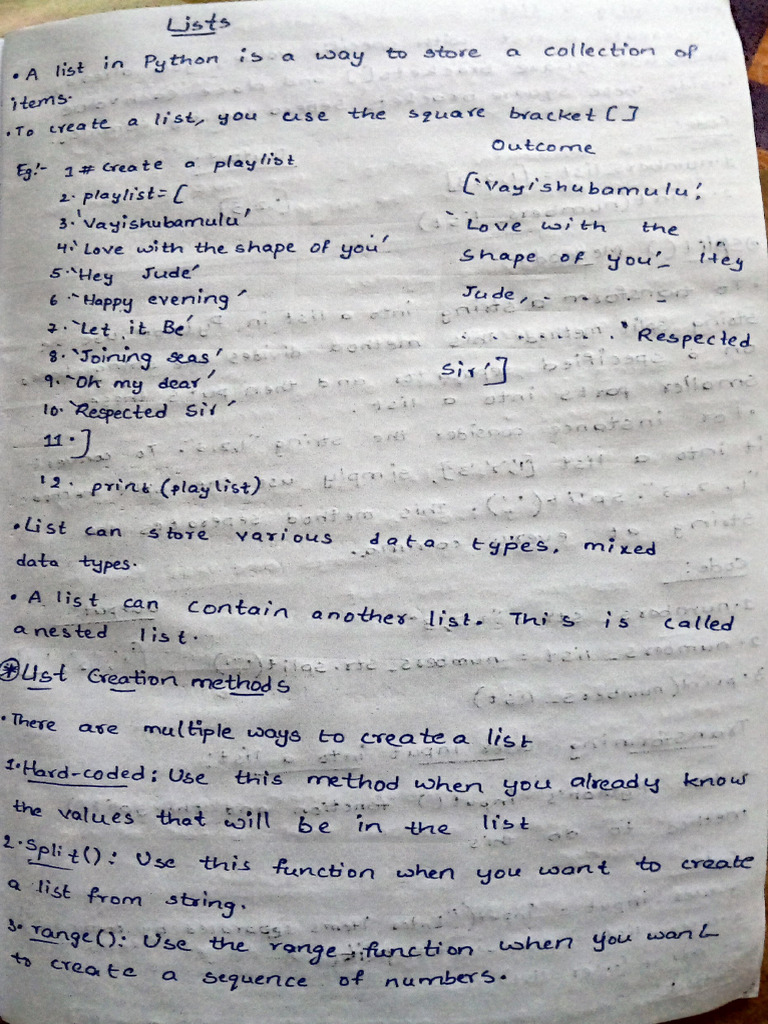 Lists
• A list in Python is a way to store a collection of
items.
• To create a list, you use the square bracket []
Outcome
Eg:- 1 # Create a playlist
2. playlist = [
3. 'Vayishubamulu'
4. 'Love with the shape of you'
5. 'Hey Jude'
6. 'Happy evening'
7. 'Let it Be'
8. 'Joining seas'
9. 'Oh my dear'
10. 'Respected Sir'
11. ]
12. print (playlist)
['Vayishubamulu',
'Love with the
shape of you', 'Hey
Jude, - . . . . -
. 'Respected
Sir']
• List can store various data types, mixed
data types.
• A list can contain another list. This is called
a nested list.
* List Creation methods
• There are multiple ways to create a list
1. Hard-coded: Use this method when you already know
the values that will be in the list
2. Split(): Use this function when you want to create
a list from string.
3. range(): Use the range function when you want
to create a sequence of numbers.